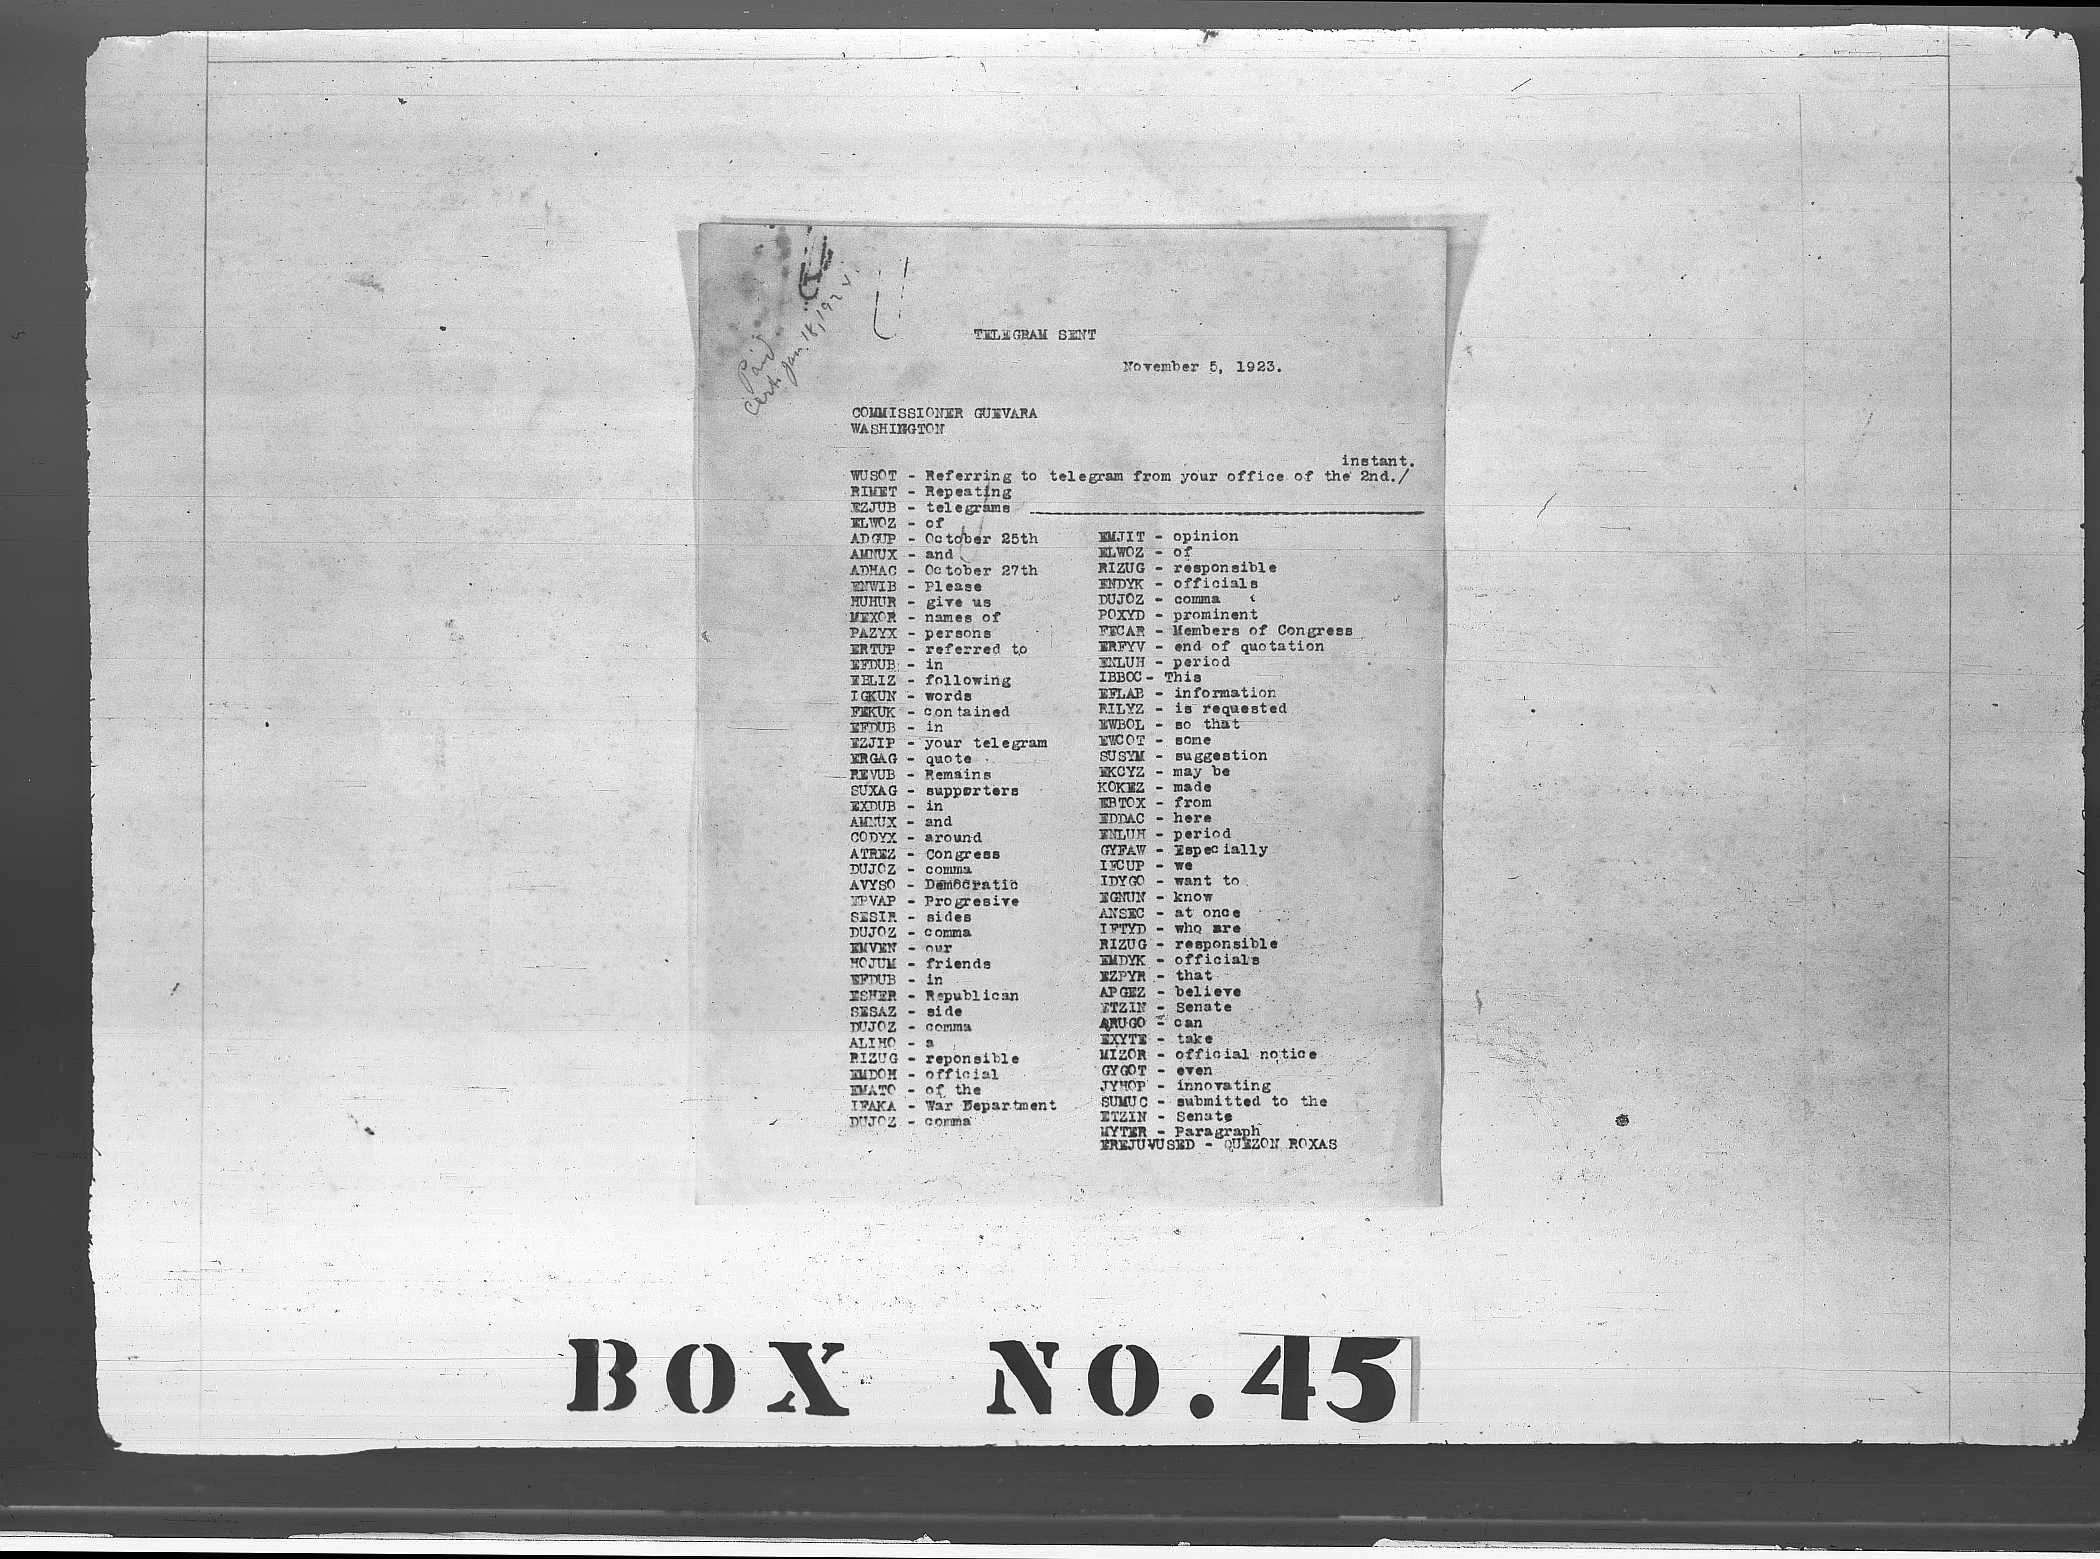 Paid
Cert. Jan. 18, 1924.
TELEGRAM SENT
November 5, 1923.
COMMISSIONER GUEVARA
WASHINGTON
instant.
WUSOT - Referring to telegram from your office of the 2nd./
RIMET - Repeating
EZJUB - telegrams
ELWOZ - of
ADGUP - October 25th
AMNUX - and
ADHAC - October 27th
ENWIB - Please
HUHUR - give us
MEXOR - names of
PAZYX - persons
ERTUP - referred to
EFDUB - in
EBLIZ - following
IGKUN - words
FEKUK - contained
EFDUB - in
EZJIP - your telegram
ERGAG - quote
REVUB - Remains
SUXAG - supporters
EXDUB - in
AMNUX - and
CODYX - around
ATREZ - Congress
DUJOZ - comma
AVYSO - Democratic
EPVAP - Progresive
SESIR - sides
DUJOZ - comma
EMVEN - our
HOJUM - friends
EFDUB - in
ESHER - Republican
SESAZ - side
DUJOZ - comma
ALIHO - a
RIZUG - reponsible
EMDOH - official
EMATO - of the
IFAKA - War Department
DUJOZ - comma
EMJIT - opinion
ELWOZ - of
RIZUG - responsible
ENDYK - officials
DUJOZ - comma
POXYD - prominent
FECAR - Members of Congress
ERFYV - end of quotation
ENLUH - period
IBBOC- This
EFLAB - information
RILYZ - is requested
EWBOL - so that
EWCOT - some
SUSYM - suggestion
EKCYZ - may be
KOKEZ - made
EBTOX - from
EDDAC - here
ENLUH - period
GYFAW - Especially
IFCUP - we
IDYGO - want to
EGNUN - know
ANSEC - at once
IFTYD - who are
RIZUG - responsible
EMDYK - officials
EZPYR - that
APGEZ - believe
ETZIN - Senate
ARUGO - can
EXYTE - take
MIZOR - official notice
GYGOT - even
JYHOP - innovating
SUMUC - submitted to the
ETZIN - Senate
MYTER - Paragraph
EREJUVUSED - QUEZON ROXAS
BOX NO. 45